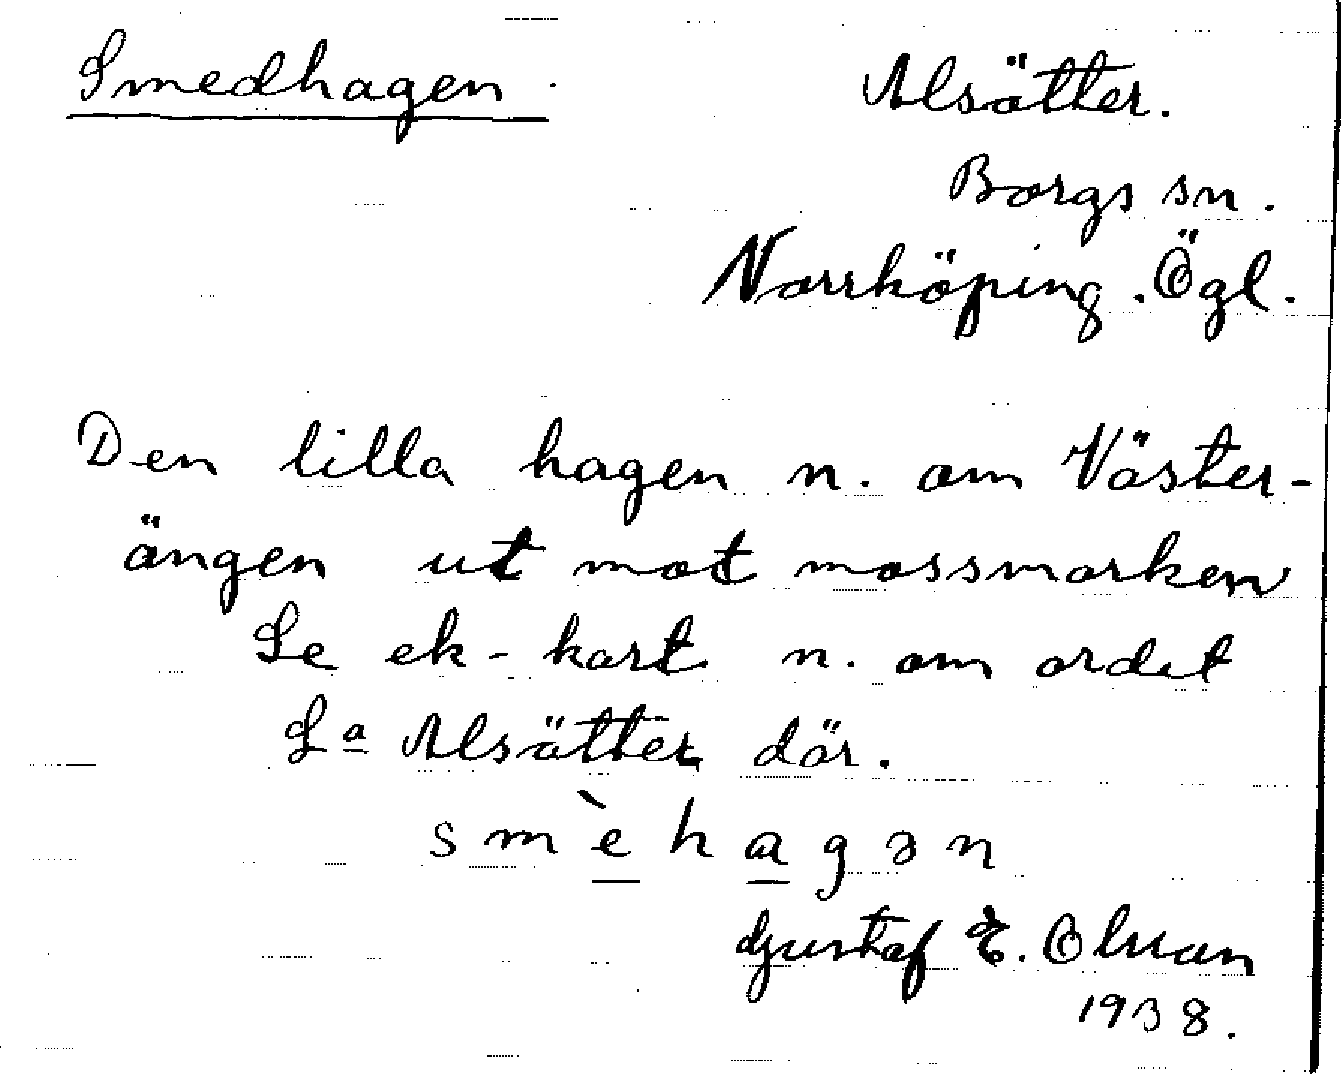 Smedhagen.
Alsätter.
Borgs sn.
Norrköping. Ögl.
Den lilla hagen n. om Väster-
ängen ut mot mossmarken
Se ek-kart n. om ordet
Sa Alsätter där.
smèhagən
Gustaf E. Olsson
1938.